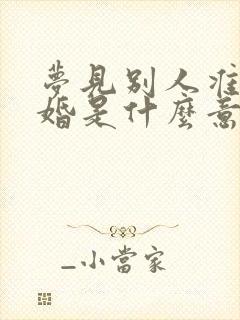 夢見別人准
婚是什麼意
_小當家